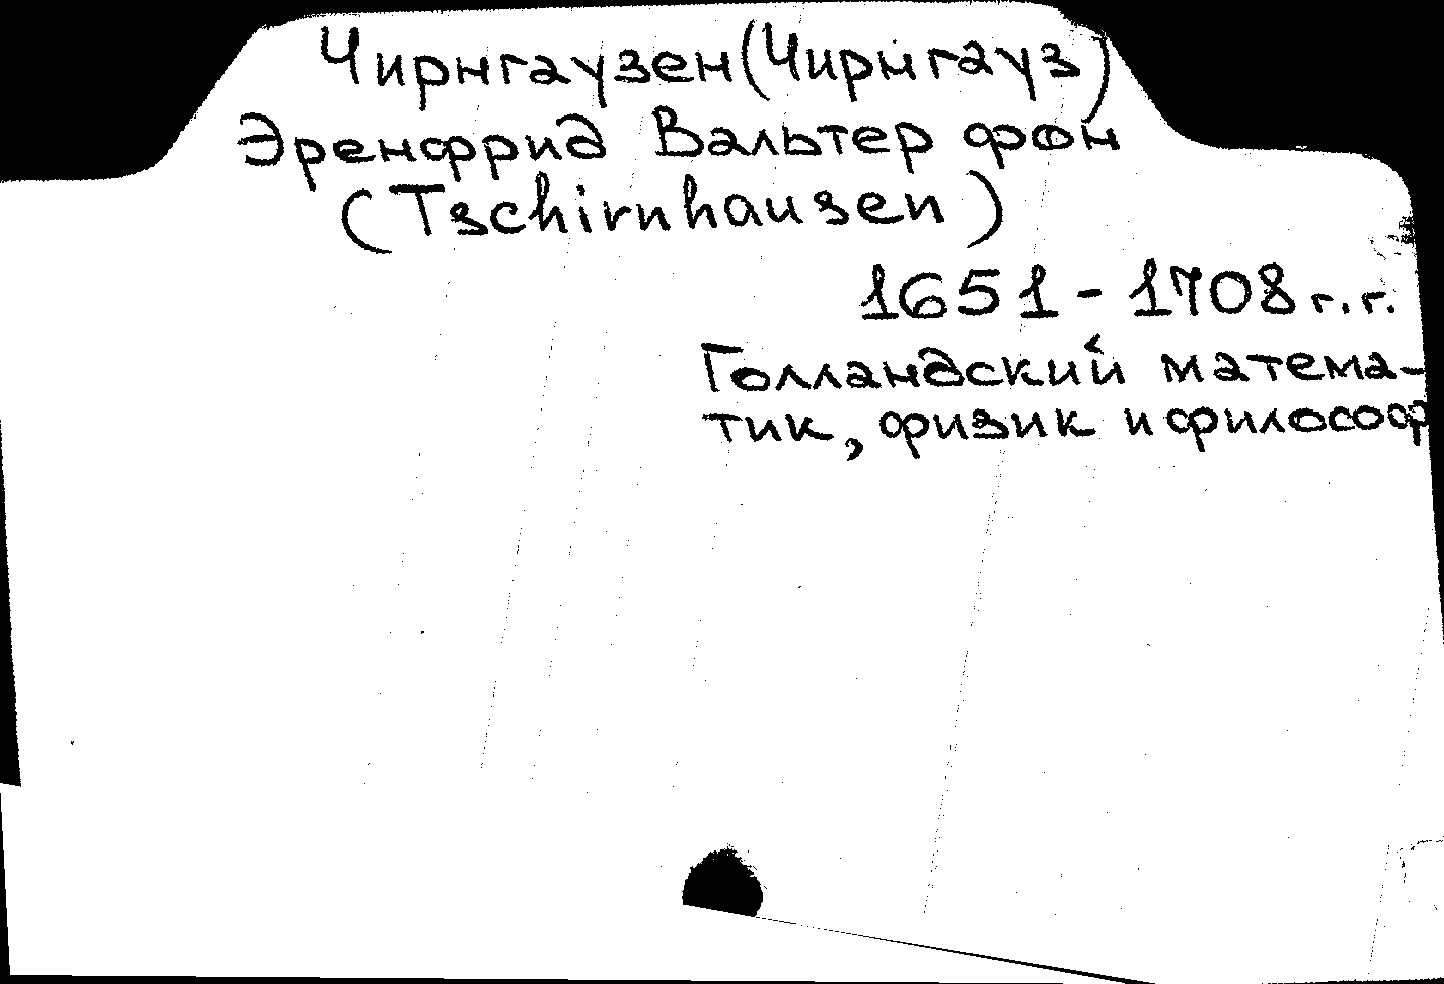 Чирнгаузен (Чирнгауз)
Эренфрид Вальтер фон
(Tschirnhausen)
1651 - 1708 г.г.
Голландский матема-
тик, физик и философ